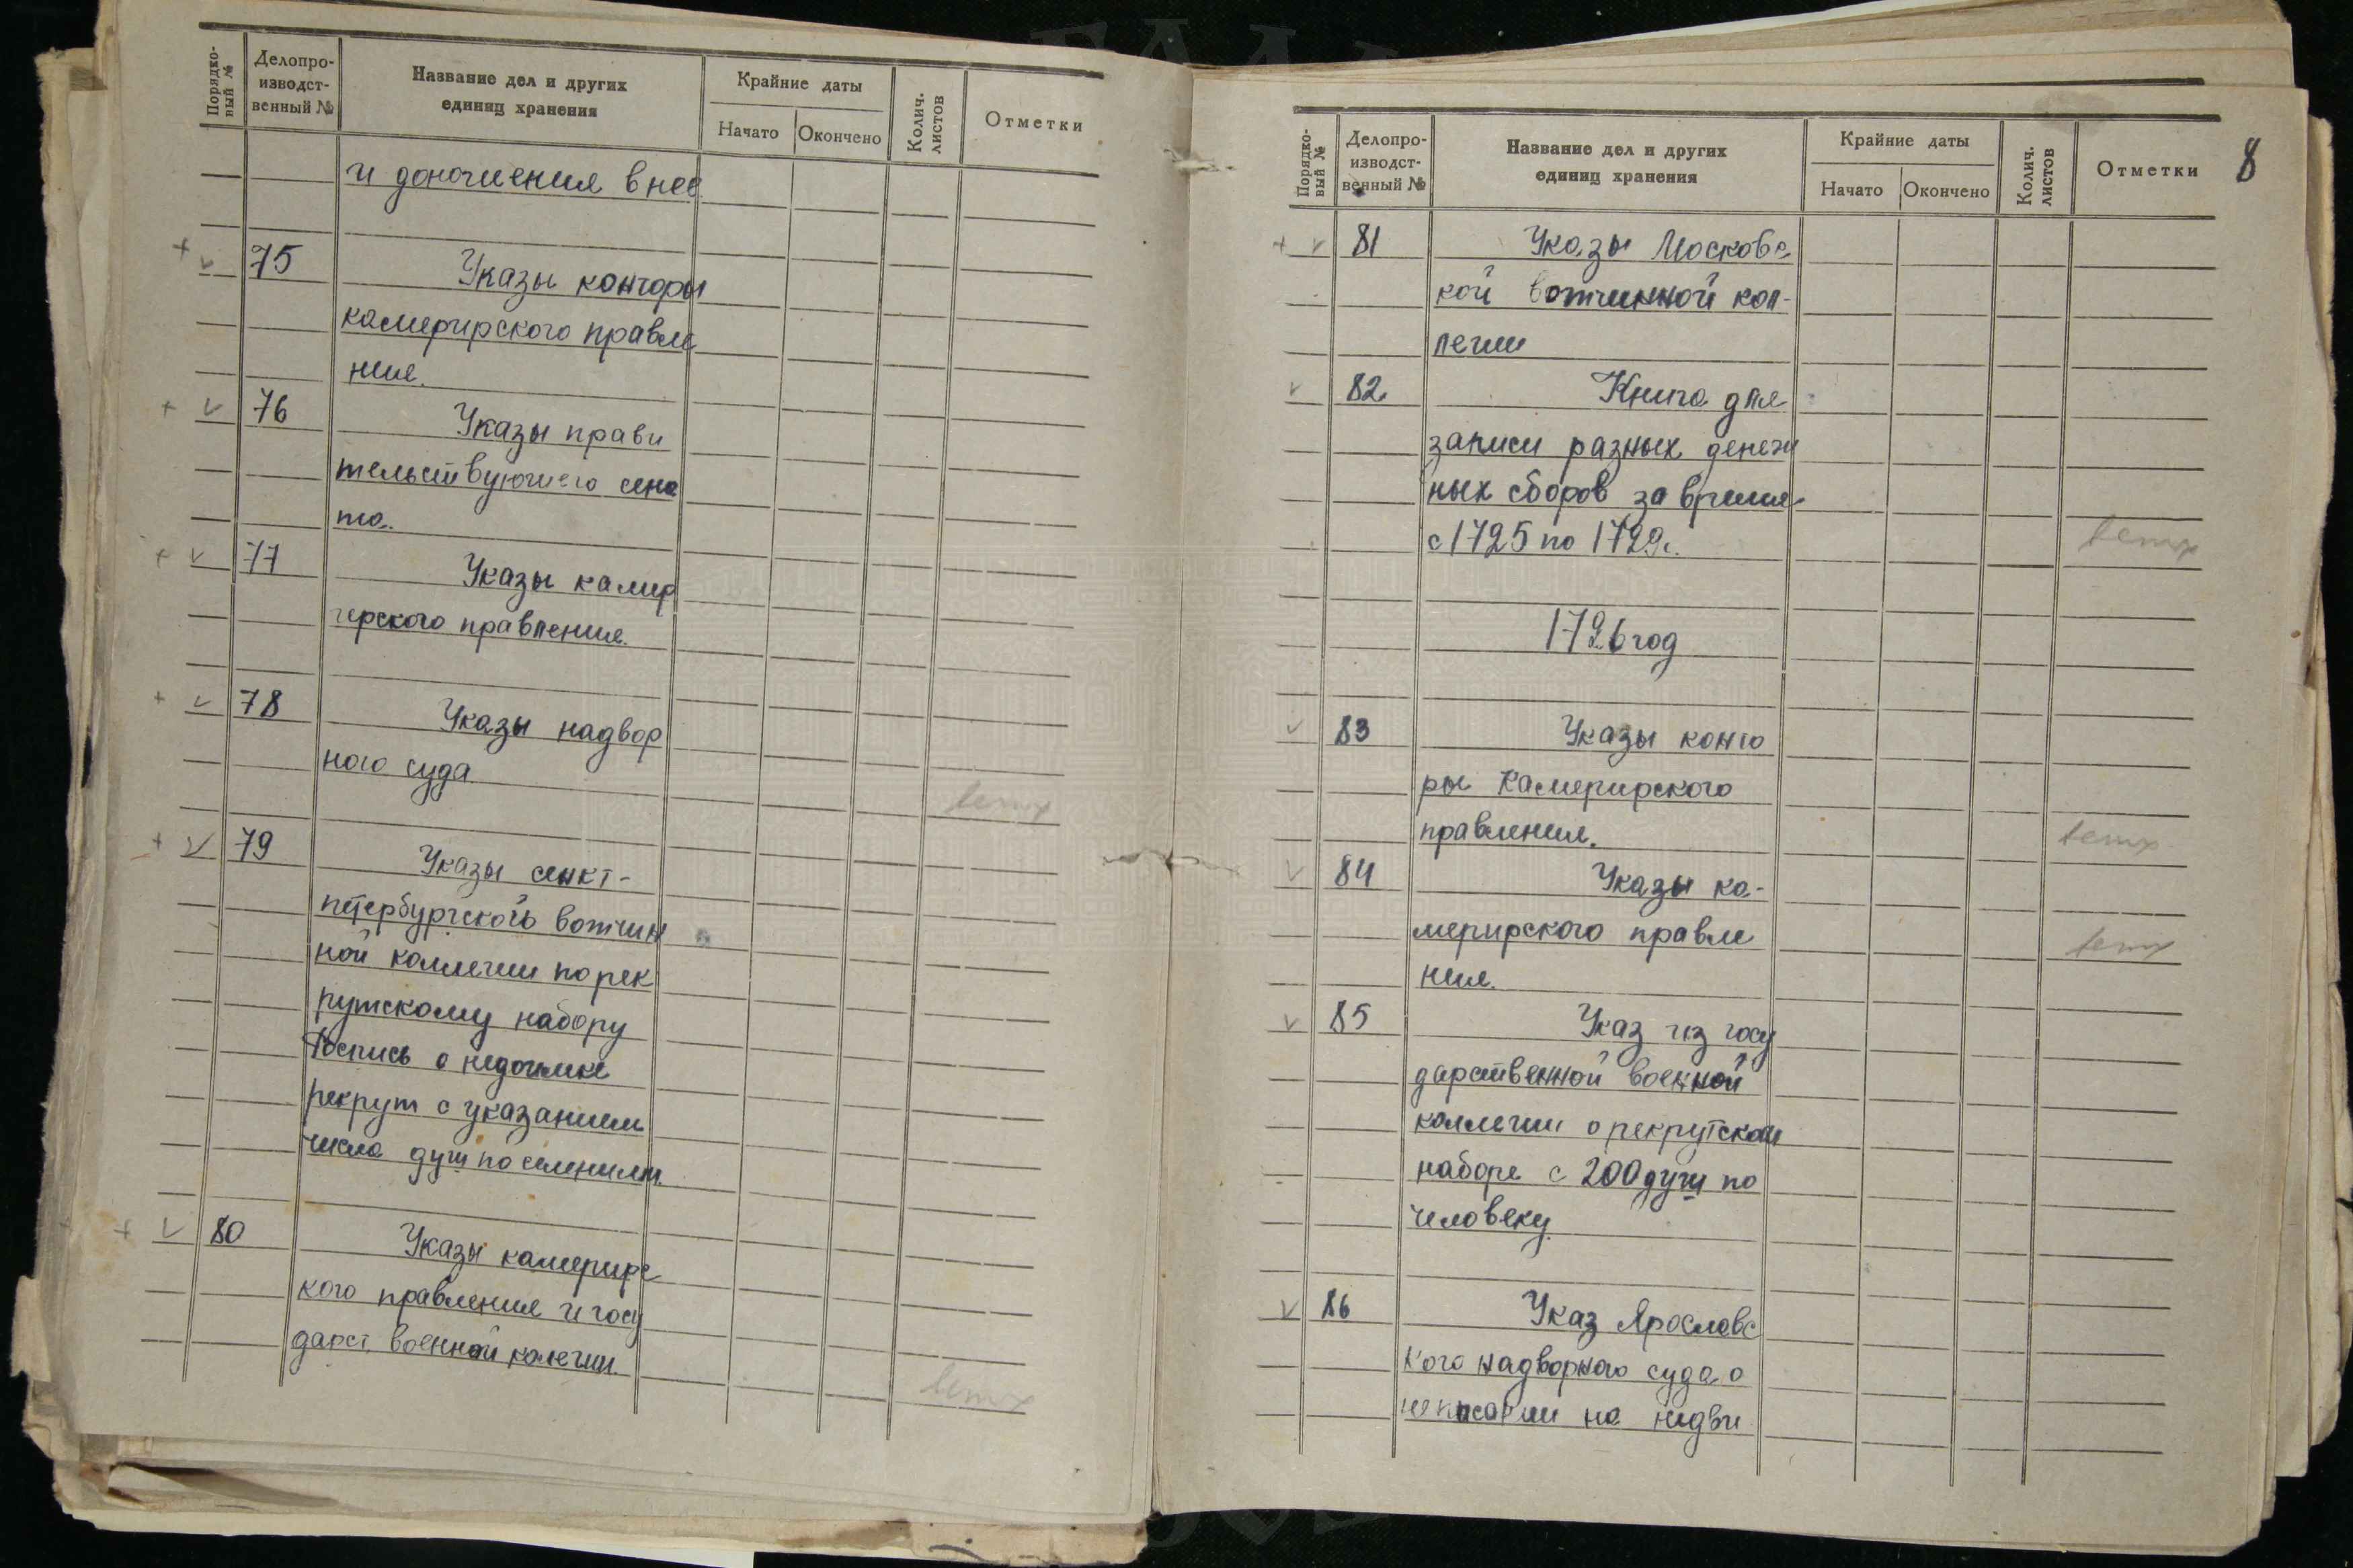 Порядко-
вый №
Делопро-
изводст-
венный №
Название дел и других
единиц хранения
Крайние даты
Начато
Окончено
Колич.
листов
Отметки
и доношения в нее
+ v 75 Указы конторы
камерирского правле
ния.
+ v 76 Указы прави
тельствующего сена
та.
+ v 77 Указы камер
герского правления.
+ v 78 Указы надвор
ного суда
ветх
+ v 79 Указы санкт-
петербургского вотчин
ной коллегии по рек
рутскому набору
Роспись о недоимке
рекрут с указанием
числа душ по селениям.
+ v 80 Указы камерирс
кого правления и госу
дарст. военной колегии.
ветх
8
Порядко-
вый №
Делопро-
изводст-
венный №
Название дел и других
единиц хранения
Крайние даты
Начато
Окончено
Колич.
листов
Отметки
+ v 81 Указы Московс
кой вотчинной кол-
легии
v 82. Книга для
записи разных денеж
ных сборов за время
с 1725 по 1729г.
ветх
1726 год
v 83 Указы конто
ры Камерирского
правления.
ветх
v 84 Указы ка-
мерирского правле
ветх
ния.
v 85 Указ из госу
дарственной военной
коллегии о рекрутском
наборе с 200 душ по
человеку
v 86 Указ Ярославс
кого надворного суда о
на недви